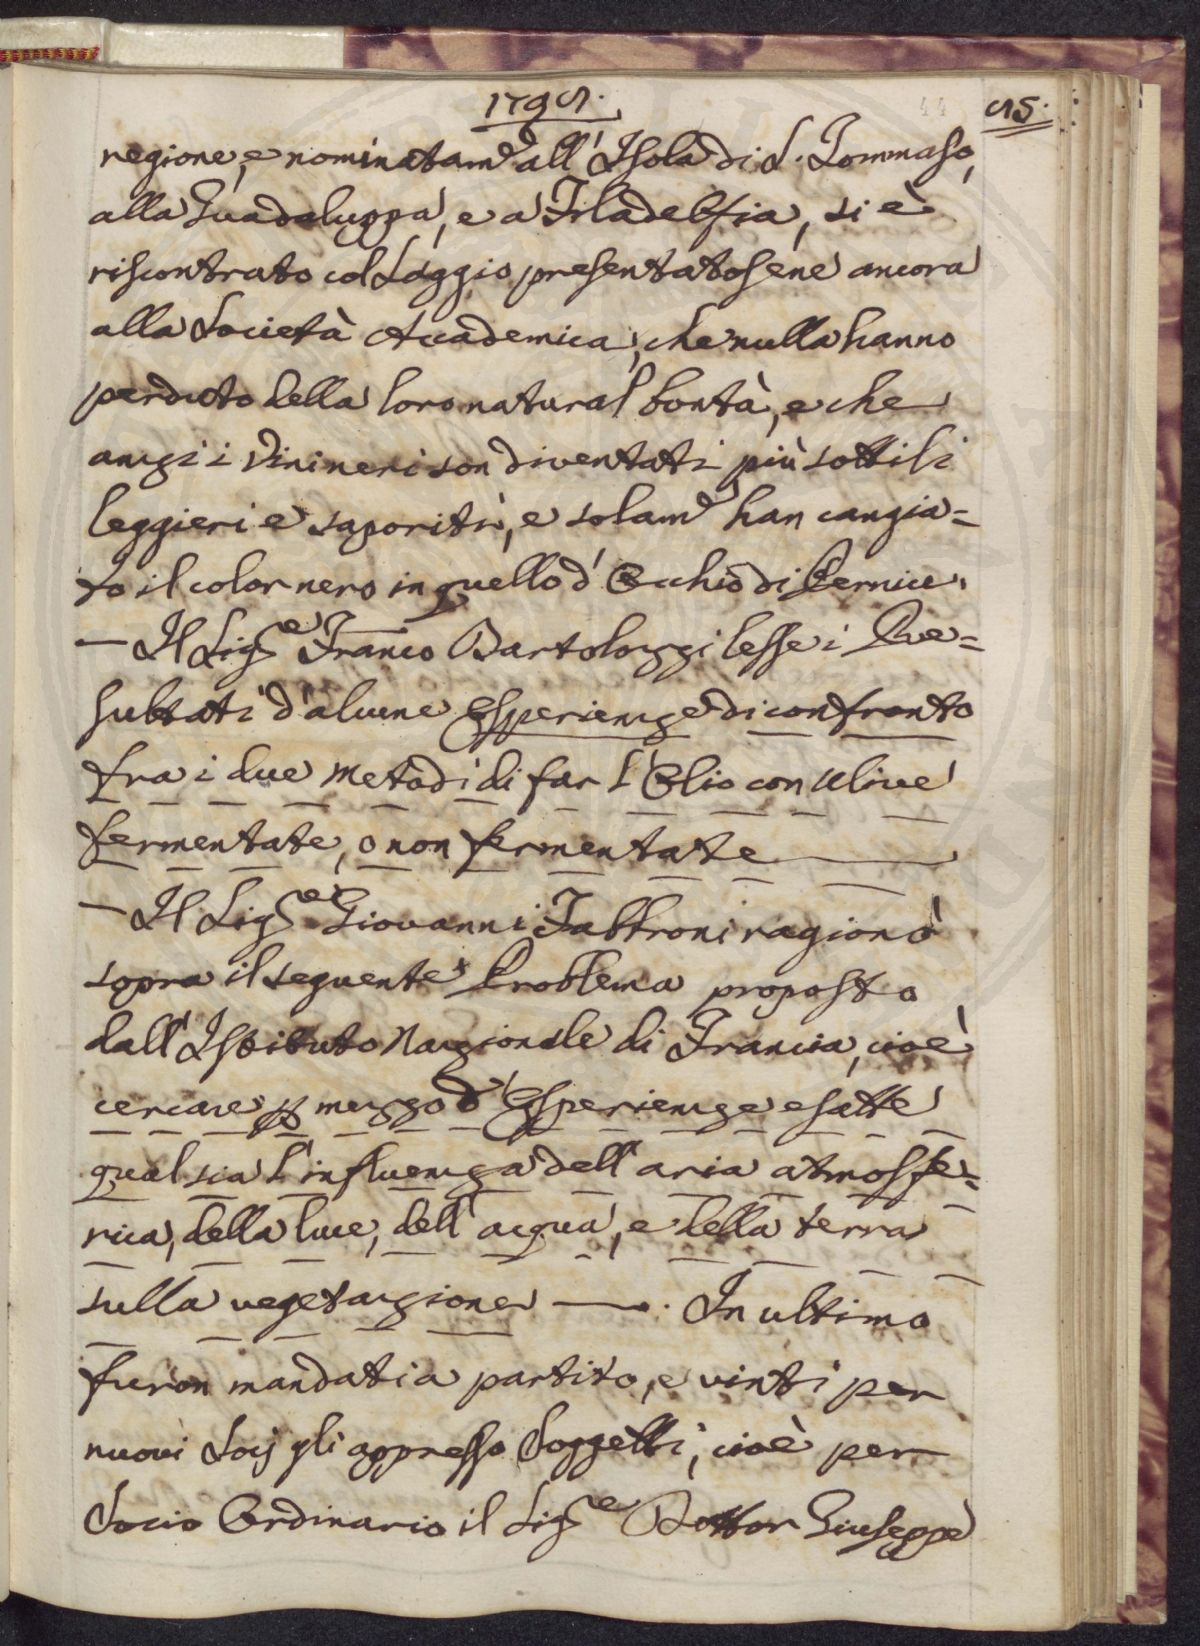 1795.
44 45.
regione, e nominatam.e all'Isola di S. Tommaso,
alla Guadaluppa, e a Filadelfia, si è
riscontrato col Saggio presentatosene ancora
alla Società Accademica, che nulla hanno
perduto della loro natural bontà, e che
anzi i Vini neri son diventati più sottili
leggieri e saporiti, e solam.e han cangia=
to il color nero in quello d'Occhio di Pernice.
— Il Sig.e Franco Bartolozzi lesse i Re=
sultati d'alcune Esperienze di confronto
fra i due metodi di far l'Olio con Ulive
fermentate, o non fermentate —
— Il Sig.e Giovanni Fabbroni ragionò
sopra il seguente Problema proposto
dall'Istituto Nazionale di Francia, cioè
cercare p mezzo d'Esperienze esatte
qual sia l'influenza dell'aria atmosfe=
rica, della luce, dell'acqua, e della terra
sulla vegetazione —. In ultimo
furon mandati a partito, e vinti per
nuovi Socj gli appresso Soggetti, cioè per
Socio Ordinario il Sig.e Dottor Giuseppe